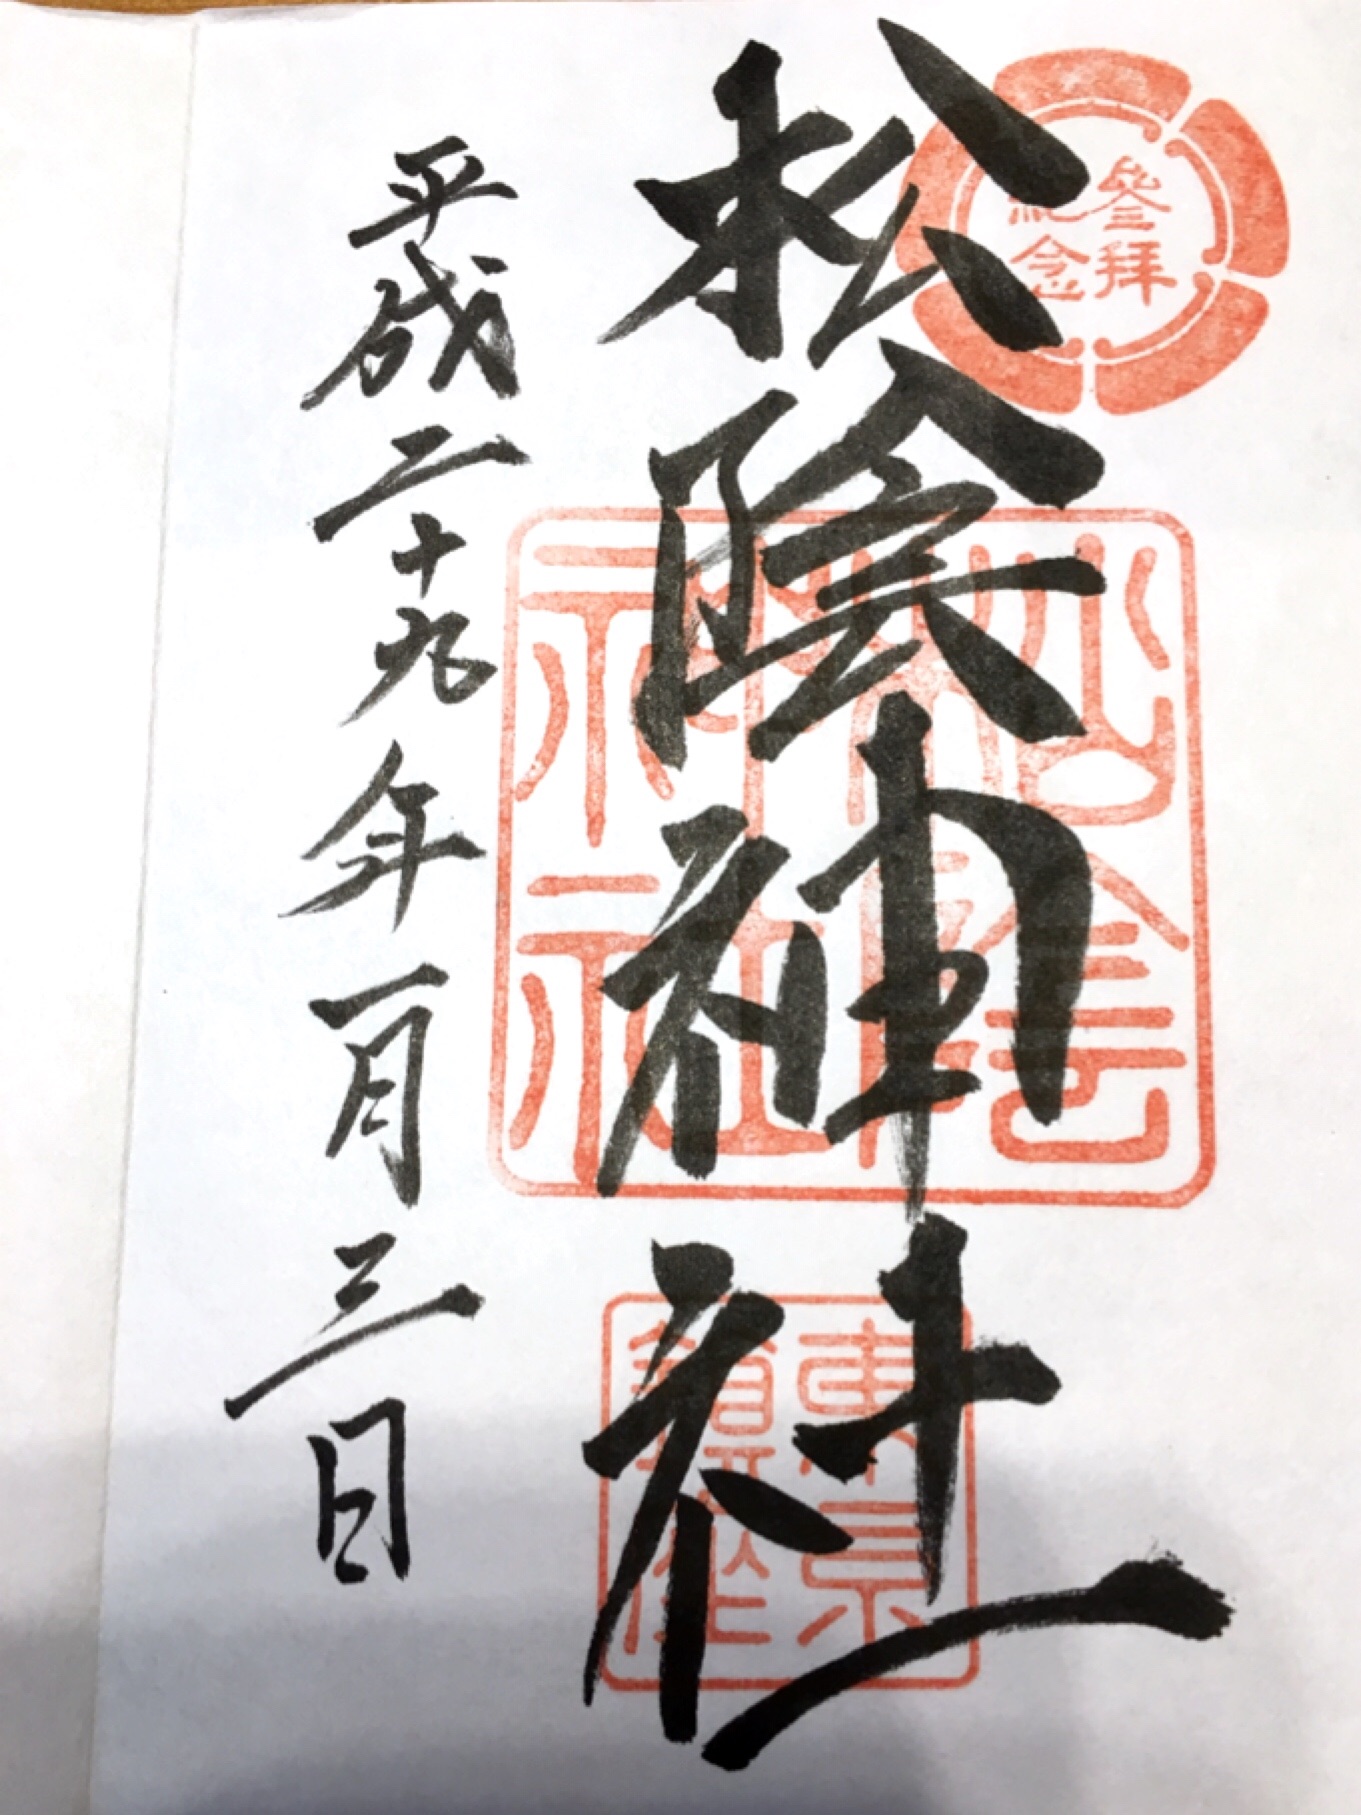 參拝
紀念
松陰神社
松陰
神社
東京
鎮座
平成二十九年一月三日